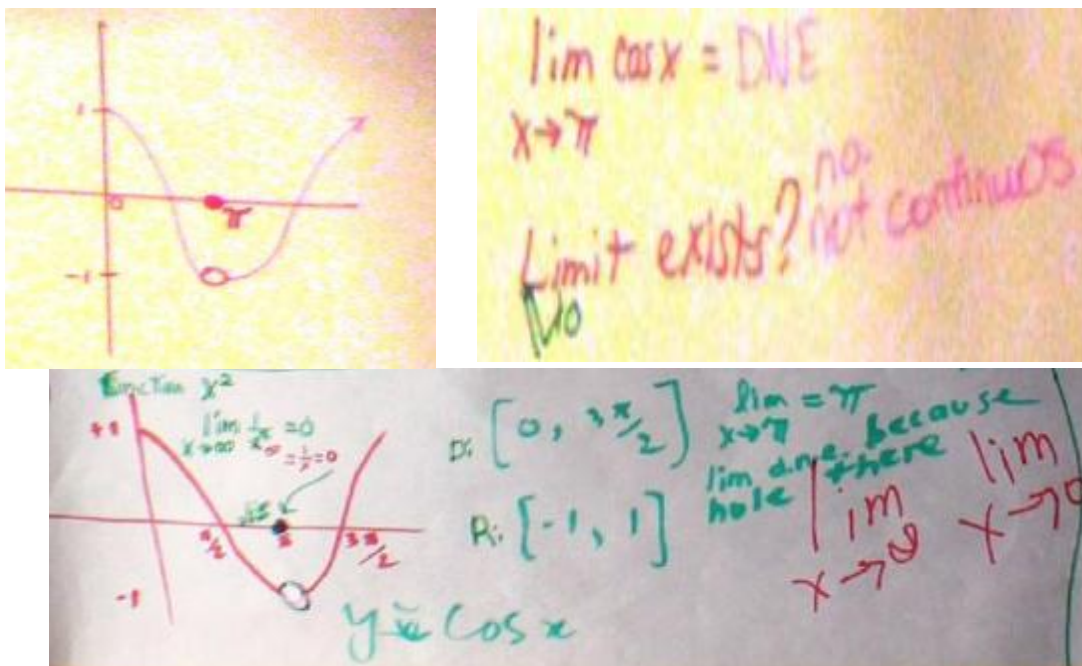 1
0
π
-1
lim cos x = DNE
x→π
Limit exists? no.
not continuos
No
Function x²
+1
lim
x→∞
= 0
π/2
π
3π/2
-1
y = cos x
D: [0, 3π/2]
R: [-1, 1]
lim = π
x→π
lim d.n.e. because
hole there
lim
x→0
lim
x→0